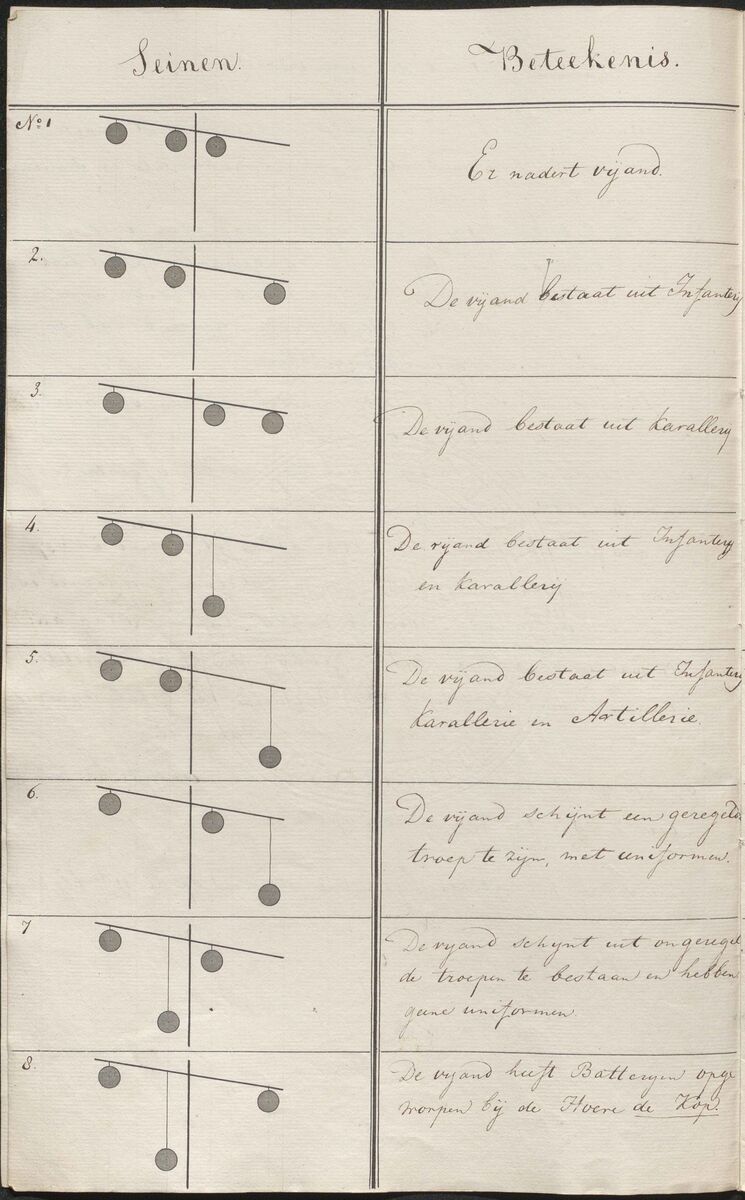 Seinen.
Beteekenis.
No. 1
Er nadert vijand.
2.
De vijand bestaat uit Infantery
3.
De vijand bestaat uit Kavallery
4.
De vijand bestaat uit Infantery
en Kavallery
5.
De vijand bestaat uit Infantery
Kavallerie en Artillerie.
6.
De vijand schijnt een geregelde
troep te zijn, met uniformen.
7
De vijand schijnt uit ongeregel
de troepen te bestaan en hebben
geene uniformen.
8.
De vijand heeft Batteryen opge
worpen bij de Hoeve de Kop.